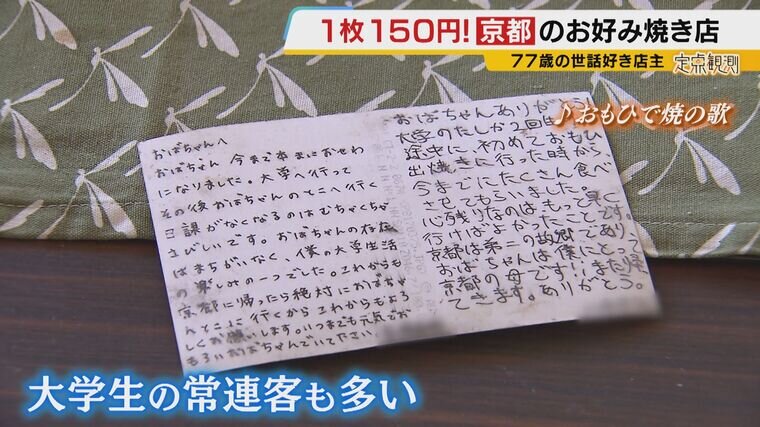 1枚150円!京都のお好み焼き店
77歳の世話好き店主
定点観測
♪おもひで焼の歌
おばちゃんへ
おばちゃん 今まで本まにおせわ
になりました。大学へ行って
その後おばちゃんのとこへ行く
日課がなくなるのはむちゃくちゃ
さびしいです。おばちゃんの存在
はまちがいなく、僕の大学生活
の楽しみの一つでした。これからも
京都に帰ったら絶対におばちゃ
んとこに行くからこれからもよろ
しくお願いします。いつまでも元気でお
もろいおばちゃんでいてください。
おばちゃんありが
大学のたしか2回生
途中に初めておもひ
出焼きに行った時から
今までにたくさん食べ
させてもらいました。
心残りなのはもっと早く
行けばよかったことです。
京都は第二の故郷であり
おばちゃんは僕にとって
京都の母です!!また帰
てきます。ありがとう。
大学生の常連客も多い